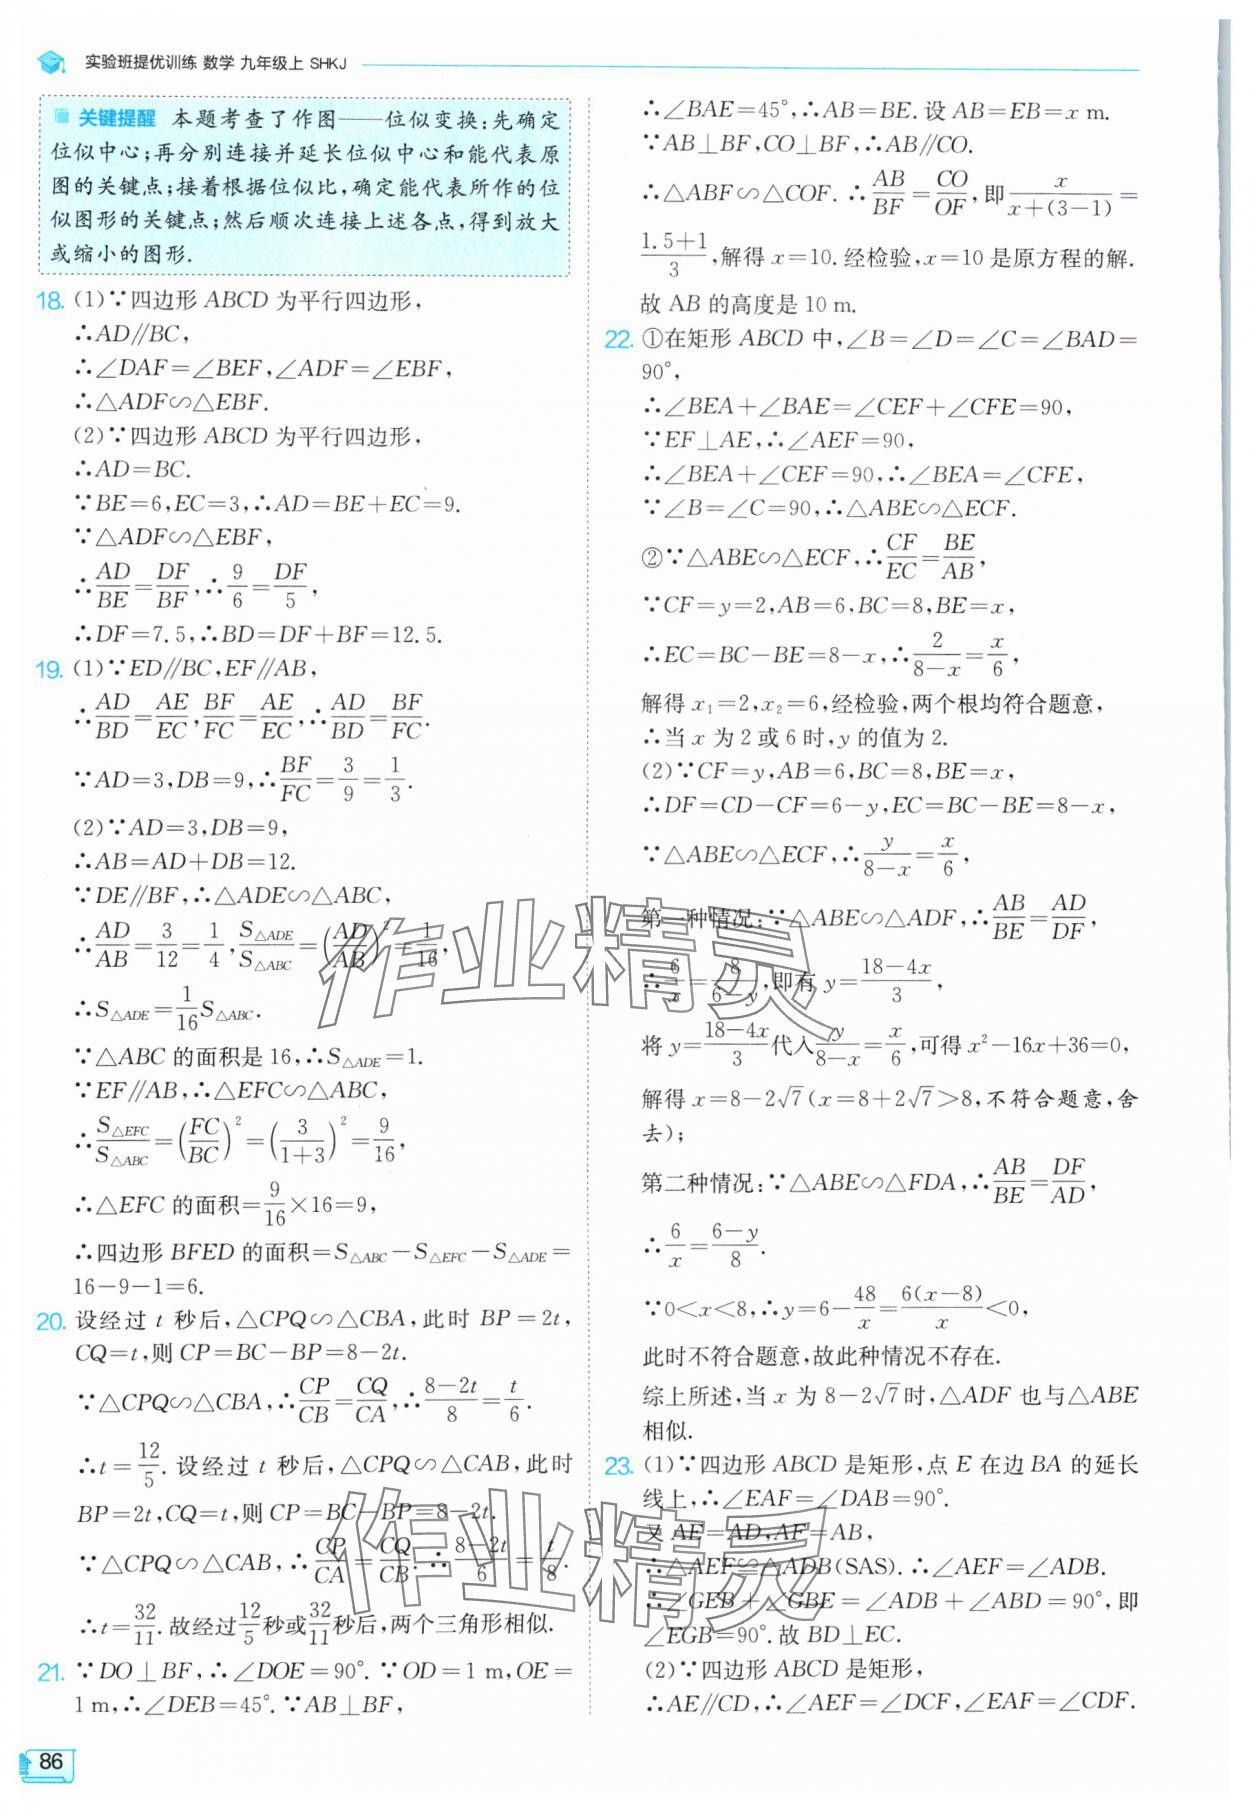 实验班提优训练 数学 九年级上 SHKJ
关键提醒 本题考查了作图——位似变换:先确定
位似中心;再分别连接并延长位似中心和能代表原
图的关键点;接着根据位似比,确定能代表所作的位
似图形的关键点;然后顺次连接上述各点,得到放大
或缩小的图形.
18. (1)∵四边形 ABCD 为平行四边形,
∴AD∥BC,
∴∠DAF=∠BEF,∠ADF=∠EBF,
∴△ADF∽△EBF.
(2)∵四边形 ABCD 为平行四边形,
∴AD=BC.
∵BE=6,EC=3,∴AD=BE+EC=9.
∵△ADF∽△EBF,
∴AD/BE=DF/BF,∴9/6=DF/5,
∴DF=7.5,∴BD=DF+BF=12.5.
19. (1)∵ED∥BC,EF∥AB,
∴AD/BD=AE/EC,BF/FC=AE/EC,∴AD/BD=BF/FC.
∵AD=3,DB=9,∴BF/FC=3/9=1/3.
(2)∵AD=3,DB=9,
∴AB=AD+DB=12.
∵DE∥BF,∴△ADE∽△ABC,
∴AD/AB=3/12=1/4,S△ADE/S△ABC=(AD/AB)²=1/16,
∴S△ADE=1/16 S△ABC.
∵△ABC 的面积是 16,∴S△ADE=1.
∵EF∥AB,∴△EFC∽△ABC,
∴S△EFC/S△ABC=(FC/BC)²=(3/(1+3))²=9/16,
∴△EFC 的面积=9/16×16=9,
∴四边形 BFED 的面积=S△ABC−S△EFC−S△ADE=
16−9−1=6.
20. 设经过 t 秒后,△CPQ∽△CBA,此时 BP=2t,
CQ=t,则 CP=BC−BP=8−2t.
∵△CPQ∽△CBA,∴CP/CB=CQ/CA,∴(8−2t)/8=t/6.
∴t=12/5. 设经过 t 秒后,△CPQ∽△CAB,此时
BP=2t,CQ=t,则 CP=BC−BP=8−2t.
∵△CPQ∽△CAB,∴CP/CA=CQ/CB,∴(8−2t)/6=t/8.
∴t=32/11. 故经过12/5秒或32/11秒后,两个三角形相似.
21. ∵DO⊥BF,∴∠DOE=90°. ∵OD=1 m,OE=
1 m,∴∠DEB=45°. ∵AB⊥BF,
∴∠BAE=45°,∴AB=BE. 设 AB=EB=x m.
∵AB⊥BF,CO⊥BF,∴AB∥CO.
∴△ABF∽△COF. ∴AB/BF=CO/OF,即x/(x+(3−1))=
(1.5+1)/3,解得 x=10. 经检验,x=10 是原方程的解.
故 AB 的高度是 10 m.
22. ①在矩形 ABCD 中,∠B=∠D=∠C=∠BAD=
90°,
∴∠BEA+∠BAE=∠CEF+∠CFE=90,
∵EF⊥AE,∴∠AEF=90,
∴∠BEA+∠CEF=90,∴∠BEA=∠CFE,
∵∠B=∠C=90,∴△ABE∽△ECF.
②∵△ABE∽△ECF,∴CF/EC=BE/AB,
∵CF=y=2,AB=6,BC=8,BE=x,
∴EC=BC−BE=8−x,∴2/(8−x)=x/6,
解得 x₁=2,x₂=6,经检验,两个根均符合题意,
∴当 x 为 2 或 6 时,y 的值为 2.
(2)∵CF=y,AB=6,BC=8,BE=x,
∴DF=CD−CF=6−y,EC=BC−BE=8−x,
∵△ABE∽△ECF,∴y/(8−x)=x/6,
第一种情况:∵△ABE∽△ADF,∴AB/BE=AD/DF,
∴6/x=8/(6−y),即有 y=(18−4x)/3,
将 y=(18−4x)/3代入y/(8−x)=x/6,可得 x²−16x+36=0,
解得 x=8−2√7(x=8+2√7>8,不符合题意,舍
去);
第二种情况:∵△ABE∽△FDA,∴AB/BE=DF/AD,
∴6/x=(6−y)/8.
∵0<x<8,∴y=6−48/x=6(x−8)/x<0,
此时不符合题意,故此种情况不存在.
综上所述,当 x 为 8−2√7时,△ADF 也与△ABE
相似.
23. (1)∵四边形 ABCD 是矩形,点 E 在边 BA 的延长
线上,∴∠EAF=∠DAB=90°.
又 AE=AD,AF=AB,
∴△AEF∽△ADB(SAS). ∴∠AEF=∠ADB.
∴∠GEB+∠GBE=∠ADB+∠ABD=90°,即
∠EGB=90°. 故 BD⊥EC.
(2)∵四边形 ABCD 是矩形,
∴AE∥CD,∴∠AEF=∠DCF,∠EAF=∠CDF.
86
作业精灵
作业精灵